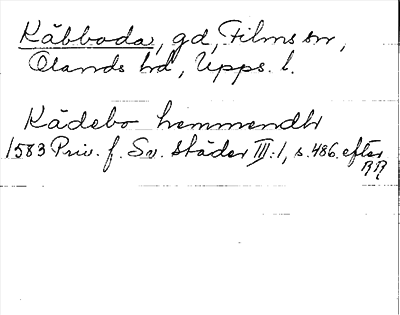 Kåbboda, gd, Films sn,
Olands hd, Upps. l.
Kådebo hemmendh
1583 Priv. f. Sv. städer III:1, s. 486. efter
RR